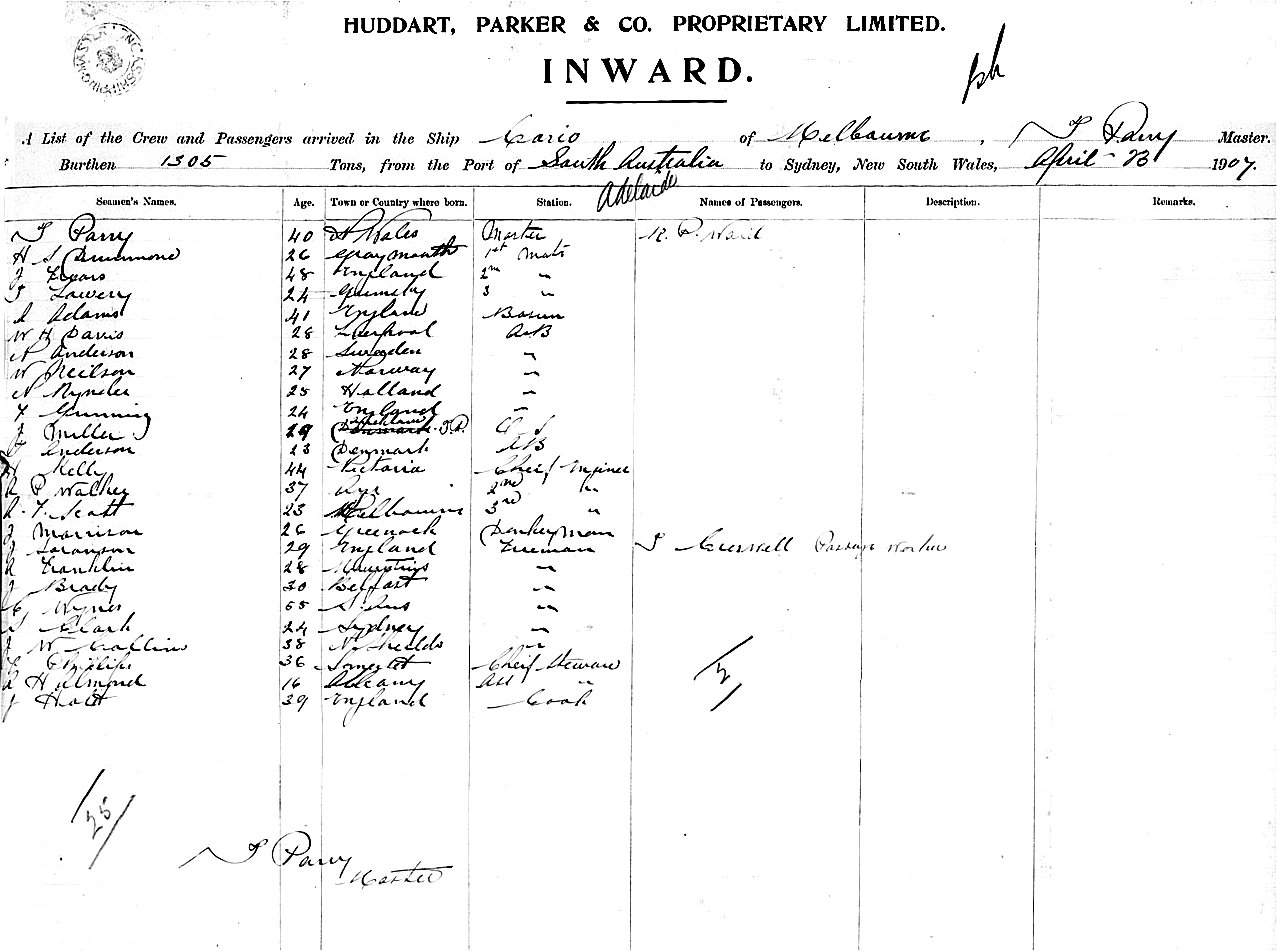 HUDDART, PARKER & CO. PROPRIETARY LIMITED.
INWARD.
A List of the Crew and Passengers arrived in the Ship of Melbourne, T Parry Master.
Burthen 1305 Tons, from the Port of South Australia to Sydney, New South Wales, April 23 1907.
Adelaide
Seamen's Names. Age. Town or Country where born. Station. Names of Passengers. Description. Remarks.
T Parry 40 N Wales Master
H S Drummond 26 Graymouth 1st Mate
J 48 England 2nd "
T Lowery 24 Grimsby 3 "
Adams 41 England Bosun
W H Davis 28 Liverpool A.B
A Anderson 28 Sweeden "
W Neilson 27 Norway "
A 25 Holland "
F Gunning 24 England "
J Miller 29 Denmark
Anderson 23 Denmark AB
H Kelly 44 Victoria Chief
R P Walker 37 Ayr 2nd "
A. F. Scott 23 Melbourne 3rd "
J Morrison 26 Greenock Donkeyman
J 29 England Fireman T Passage Worker
A Franklin 28 "
J Brady 30 Belfast "
"
Clark 24 Sydney "
J W Collins 38 N Shields "
Phillips 36 Somerset Chief Steward
A H Almond 16 Albany Ass "
J Holt 39 England Cook
2
25
T Parry
Master